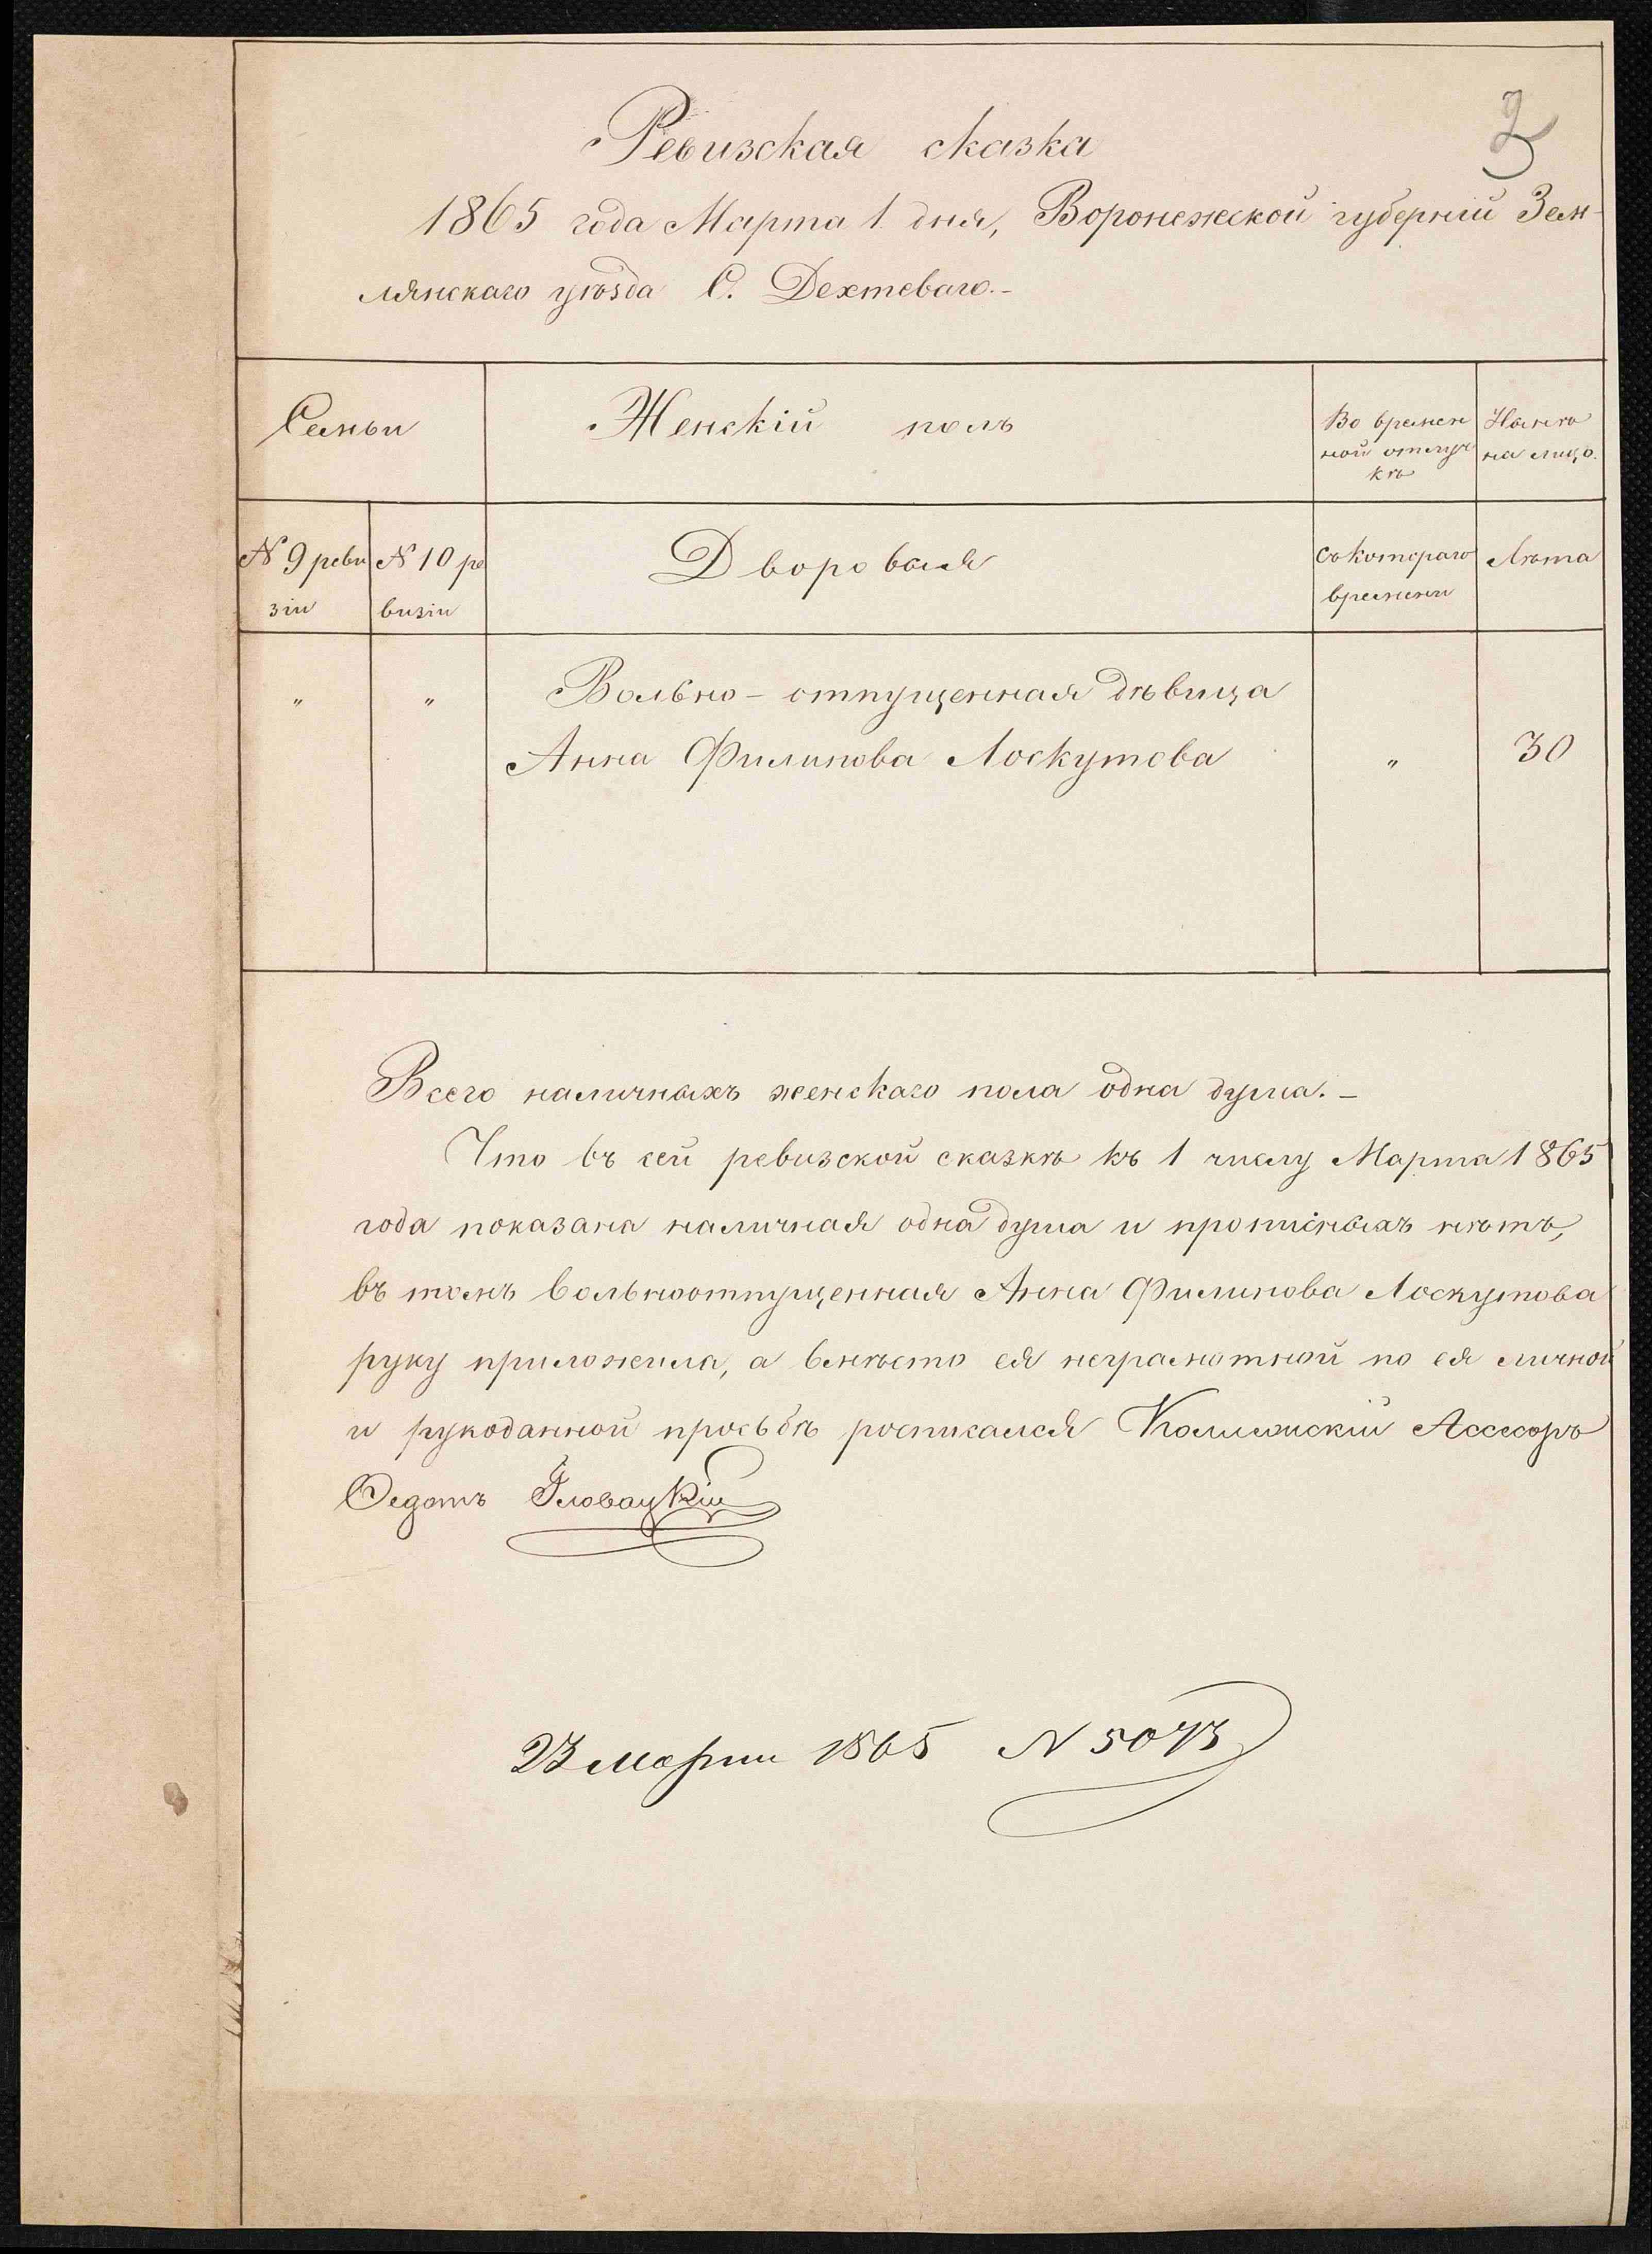 3
Ревизская сказка
1865 года Марта 1 дня, Воронежской губерніи Зем-
лянскаго уѣзда С. Дехтеваго.-
Семьи
Женскій полъ
Во времен
ной отлуч
кѣ
Нынѣ
на лицо.
N 9 реви
зіи
N 10 ре
визіи
Дворовыя
Съ котораго
времени
Лѣта
" " Вольно-отпущенная дѣвица
Анна Филипова Лоскутова " 30
Всего наличныхъ женскаго пола одна душа.-
Что въ сей ревизской сказкѣ къ 1 числу Марта 1865
года показана наличная одна душа и прописныхъ нѣтъ,
въ томъ вольноотпущенная Анна Филипова Лоскутова
руку приложила, а вмѣсто ея неграмотной по ея личной
и рукоданной просьбѣ росписался Коллежскій Ассесоръ
Федотъ Головацкій
23 Марта 1865 N 5073